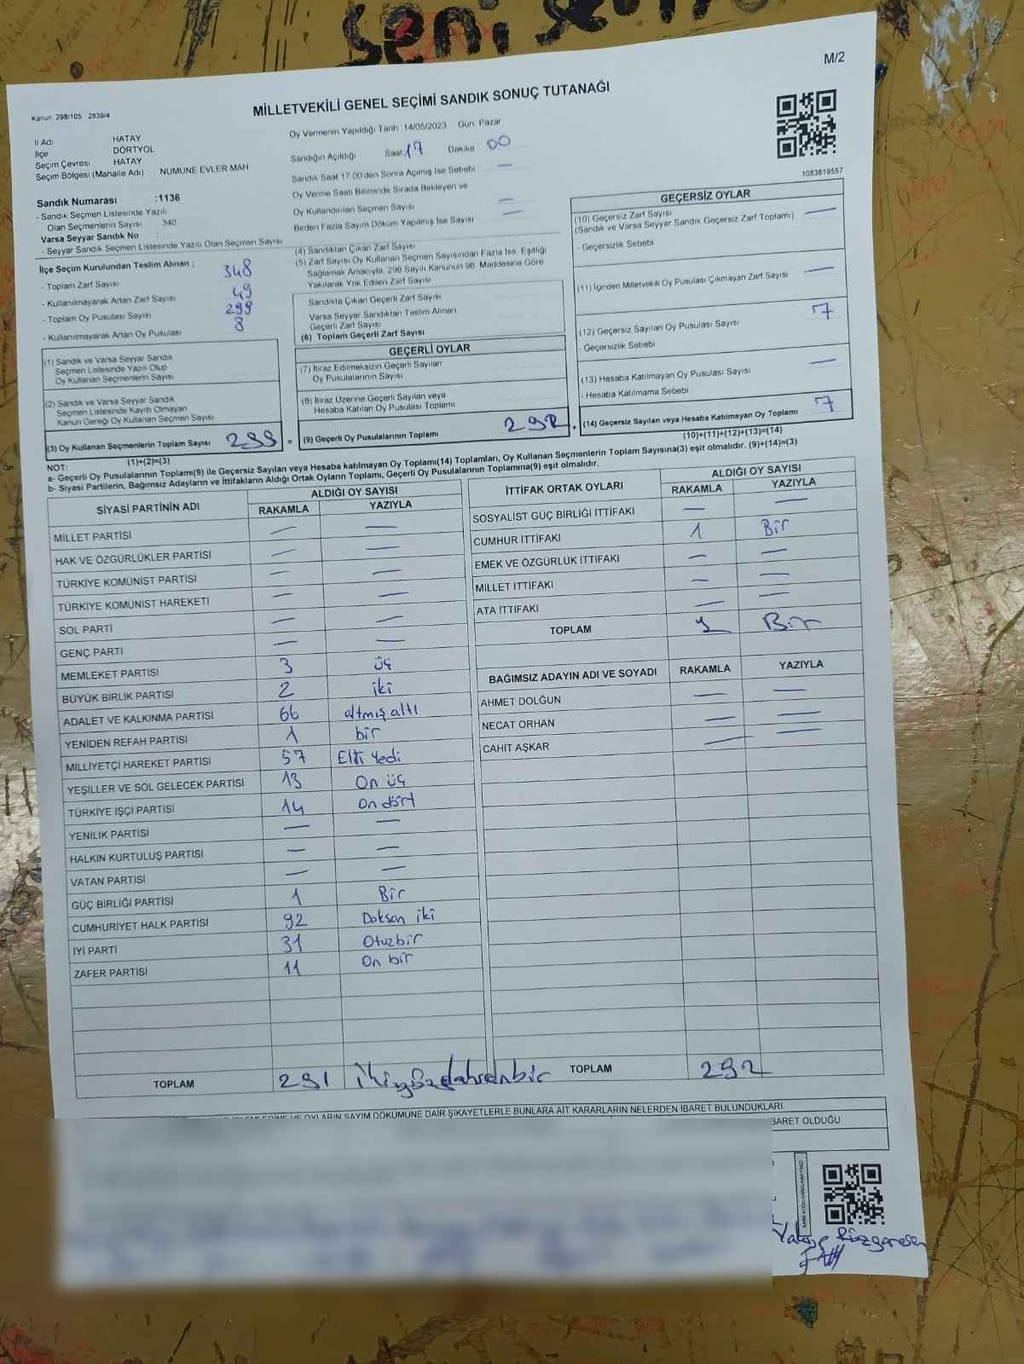 M/2
MİLLETVEKİLİ GENEL SEÇİMİ SANDIK SONUÇ TUTANAĞI
Kanun: 298/105 2839/4
İl Adı HATAY
İlçe DÖRTYOL
Seçim Çevresi HATAY
Seçim Bölgesi (Mahalle Adı) NUMUNE EVLER MAH
Sandık Numarası :1136
- Sandık Seçmen Listesinde Yazılı
Olan Seçmenlerin Sayısı 340
Varsa Seyyar Sandık No :
- Seyyar Sandık Seçmen Listesinde Yazılı Olan Seçmen Sayısı
İlçe Seçim Kurulundan Teslim Alınan ;
- Toplam Zarf Sayısı 348
- Kullanılmayarak Artan Zarf Sayısı 49
- Toplam Oy Pusulası Sayısı 299
- Kullanılmayarak Artan Oy Pusulası 8
(1) Sandık ve Varsa Seyyar Sandık
Seçmen Listesinde Yazılı Olup
Oy Kullanan Seçmenlerin Sayısı
(2) Sandık ve Varsa Seyyar Sandık
Seçmen Listesinde Kayıtlı Olmayan
Kanun Gereği Oy Kullanan Seçmen Sayısı
(3) Oy Kullanan Seçmenlerin Toplam Sayısı 299 =
(1)+(2)=(3)
Oy Vermenin Yapıldığı Tarih: 14/05/2023 Gün: Pazar
Sandığın Açıldığı Saat 17 Dakika 00
Sandık Saat 17.00'den Sonra Açılmış İse Sebebi —
Oy Verme Saati Bitiminde Sırada Bekleyen ve
Oy Kullandırılan Seçmen Sayısı —
Birden Fazla Sayım Döküm Yapılmış İse Sayısı —
(4) Sandıktan Çıkan Zarf Sayısı
(5) Zarf Sayısı Oy Kullanan Seçmen Sayısından Fazla İse, Eşitliği
Sağlamak Amacıyla, 298 Sayılı Kanunun 98. Maddesine Göre
Yakılarak Yok Edilen Zarf Sayısı
Sandıkta Çıkan Geçerli Zarf Sayısı
Varsa Seyyar Sandıktan Teslim Alınan
Geçerli Zarf Sayısı
(6) Toplam Geçerli Zarf Sayısı
GEÇERLİ OYLAR
(7) İtiraz Edilmeksizin Geçerli Sayılan
Oy Pusulalarının Sayısı
(8) İtiraz Üzerine Geçerli Sayılan veya
Hesaba Katılan Oy Pusulası Toplamı
(9) Geçerli Oy Pusulalarının Toplamı 292 +
1083819557
GEÇERSİZ OYLAR
(10) Geçersiz Zarf Sayısı —
(Sandık ve Varsa Seyyar Sandık Geçersiz Zarf Toplamı)
- Geçersizlik Sebebi
(11) İçinden Milletvekili Oy Pusulası Çıkmayan Zarf Sayısı —
(12) Geçersiz Sayılan Oy Pusulası Sayısı 7
- Geçersizlik Sebebi
(13) Hesaba Katılmayan Oy Pusulası Sayısı —
- Hesaba Katılmama Sebebi
(14) Geçersiz Sayılan veya Hesaba Katılmayan Oy Toplamı 7
(10)+(11)+(12)+(13)=(14)
NOT:
a- Geçerli Oy Pusulalarının Toplamı(9) ile Geçersiz Sayılan veya Hesaba katılmayan Oy Toplamı(14) Toplamları, Oy Kullanan Seçmenlerin Toplam Sayısına(3) eşit olmalıdır. (9)+(14)=(3)
b- Siyasi Partilerin, Bağımsız Adayların ve İttifakların Aldığı Ortak Oyların Toplamı, Geçerli Oy Pusulalarının Toplamına(9) eşit olmalıdır.
SİYASİ PARTİNİN ADI ALDIĞI OY SAYISI
RAKAMLA YAZIYLA
MİLLET PARTİSİ — —
HAK VE ÖZGÜRLÜKLER PARTİSİ — —
TÜRKİYE KOMÜNİST PARTİSİ — —
TÜRKİYE KOMÜNİST HAREKETİ — —
SOL PARTİ — —
GENÇ PARTİ — —
MEMLEKET PARTİSİ 3 üç
BÜYÜK BİRLİK PARTİSİ 2 iki
ADALET VE KALKINMA PARTİSİ 66 altmış altı
YENİDEN REFAH PARTİSİ 1 bir
MİLLİYETÇİ HAREKET PARTİSİ 57 Elli Yedi
YEŞİLLER VE SOL GELECEK PARTİSİ 13 On üç
TÜRKİYE İŞÇİ PARTİSİ 14 On dört
YENİLİK PARTİSİ — —
HALKIN KURTULUŞ PARTİSİ — —
VATAN PARTİSİ — —
GÜÇ BİRLİĞİ PARTİSİ 1 Bir
CUMHURİYET HALK PARTİSİ 92 Doksan iki
İYİ PARTİ 31 Otuzbir
ZAFER PARTİSİ 11 On bir
TOPLAM 291 ikiyüzdoksanbir
İTTİFAK ORTAK OYLARI ALDIĞI OY SAYISI
RAKAMLA YAZIYLA
SOSYALİST GÜÇ BİRLİĞİ İTTİFAKI — —
CUMHUR İTTİFAKI 1 Bir
EMEK VE ÖZGÜRLÜK İTTİFAKI — —
MİLLET İTTİFAKI — —
ATA İTTİFAKI — —
TOPLAM 1 Bir
BAĞIMSIZ ADAYIN ADI VE SOYADI RAKAMLA YAZIYLA
AHMET DOLĞUN — —
NECAT ORHAN — —
CAHİT AŞKAR — —
TOPLAM 292
OYLARIN SAYIM DÖKÜMÜNE DAİR ŞİKAYETLERLE BUNLARA AİT KARARLARIN NELERDEN İBARET BULUNDUKLARI
BARET OLDUĞU